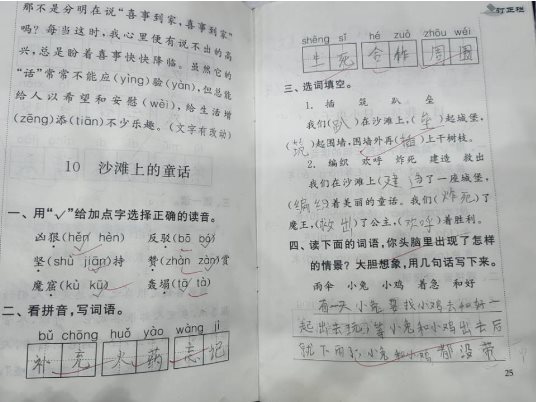 那不是分明在说“喜事到家，喜事到家”
吗？每当这时，我心里便有说不出的高
兴，总是盼着喜事快快降临。虽然它的
“话”常常不能应(yìng)验(yàn)，但总能
给人以希望和安慰(wèi)，给生活增
(zēng)添(tiān)不少乐趣。(文字有改动)
10 沙滩上的童话
一、用“✓”给加点字选择正确的读音。
凶狠(hěn hèn) 反驳(bō bó)
坚(shù jiān)持 赞(zhàn zàn)赏
魔窟(kù kū) 轰塌(tā tà)
二、看拼音，写词语。
bǔ chōng huǒ yào wàng jì
补充 火药 忘记
订正栏
shēng sǐ hé zuò zhōu wéi
生死 合作 周围
三、选词填空。
1. 插 筑 趴 垒
我们(趴)在沙滩上，(垒)起城堡，
(筑)起围墙，围墙外再(插)上干树枝。
2. 编织 欢呼 炸死 建造 救出
我们在沙滩上(建造)了一座城堡，
(编织)着美丽的童话。我们(炸死)了
魔王，(救出)了公主，(欢呼)着胜利。
四、读下面的词语，你头脑里出现了怎样
的情景？大胆想象，用几句话写下来。
雨伞 小兔 小鸡 着急 和好
有一天小兔要找小鸡去和好一
起出去玩，等小兔和小鸡出去后
就下雨了，小兔和小鸡都没带
25